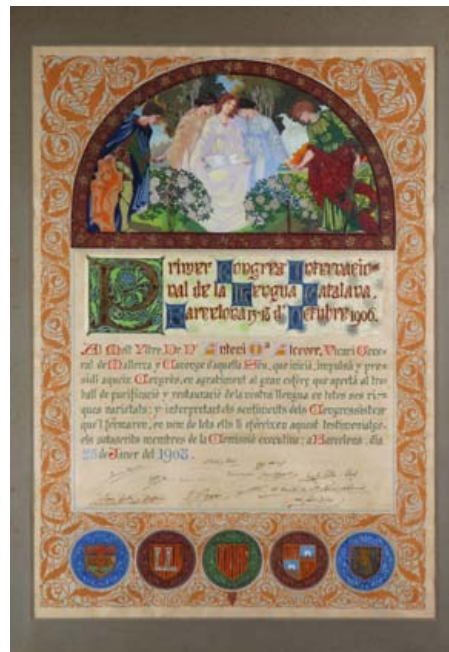 Primer Congrés Internacio=
nal de la Llengua Catalana.
Barcelona 13-18 d'Octubre 1906.
Al Molt Iltre. Dr. D. Antoni Mª Alcover, Vicari Gene-
ral de Mallorca y Canonge d'aquella Seu, que inicià, impulsà y pre-
sidí aqueix Congrés, en agrahiment al gran esforç que aportá al tre-
ball de purificació y restauració de la nostra llengua en totes ses ri-
ques varietats; y interpretant els sentiments dels Congressistes
que'l formaren, en nom de tots ells li ofereixen aquest testimoniatge,
els sotascrits membres de la Comissió executiva: a Barcelona, dia
25 de Janer del 1908.